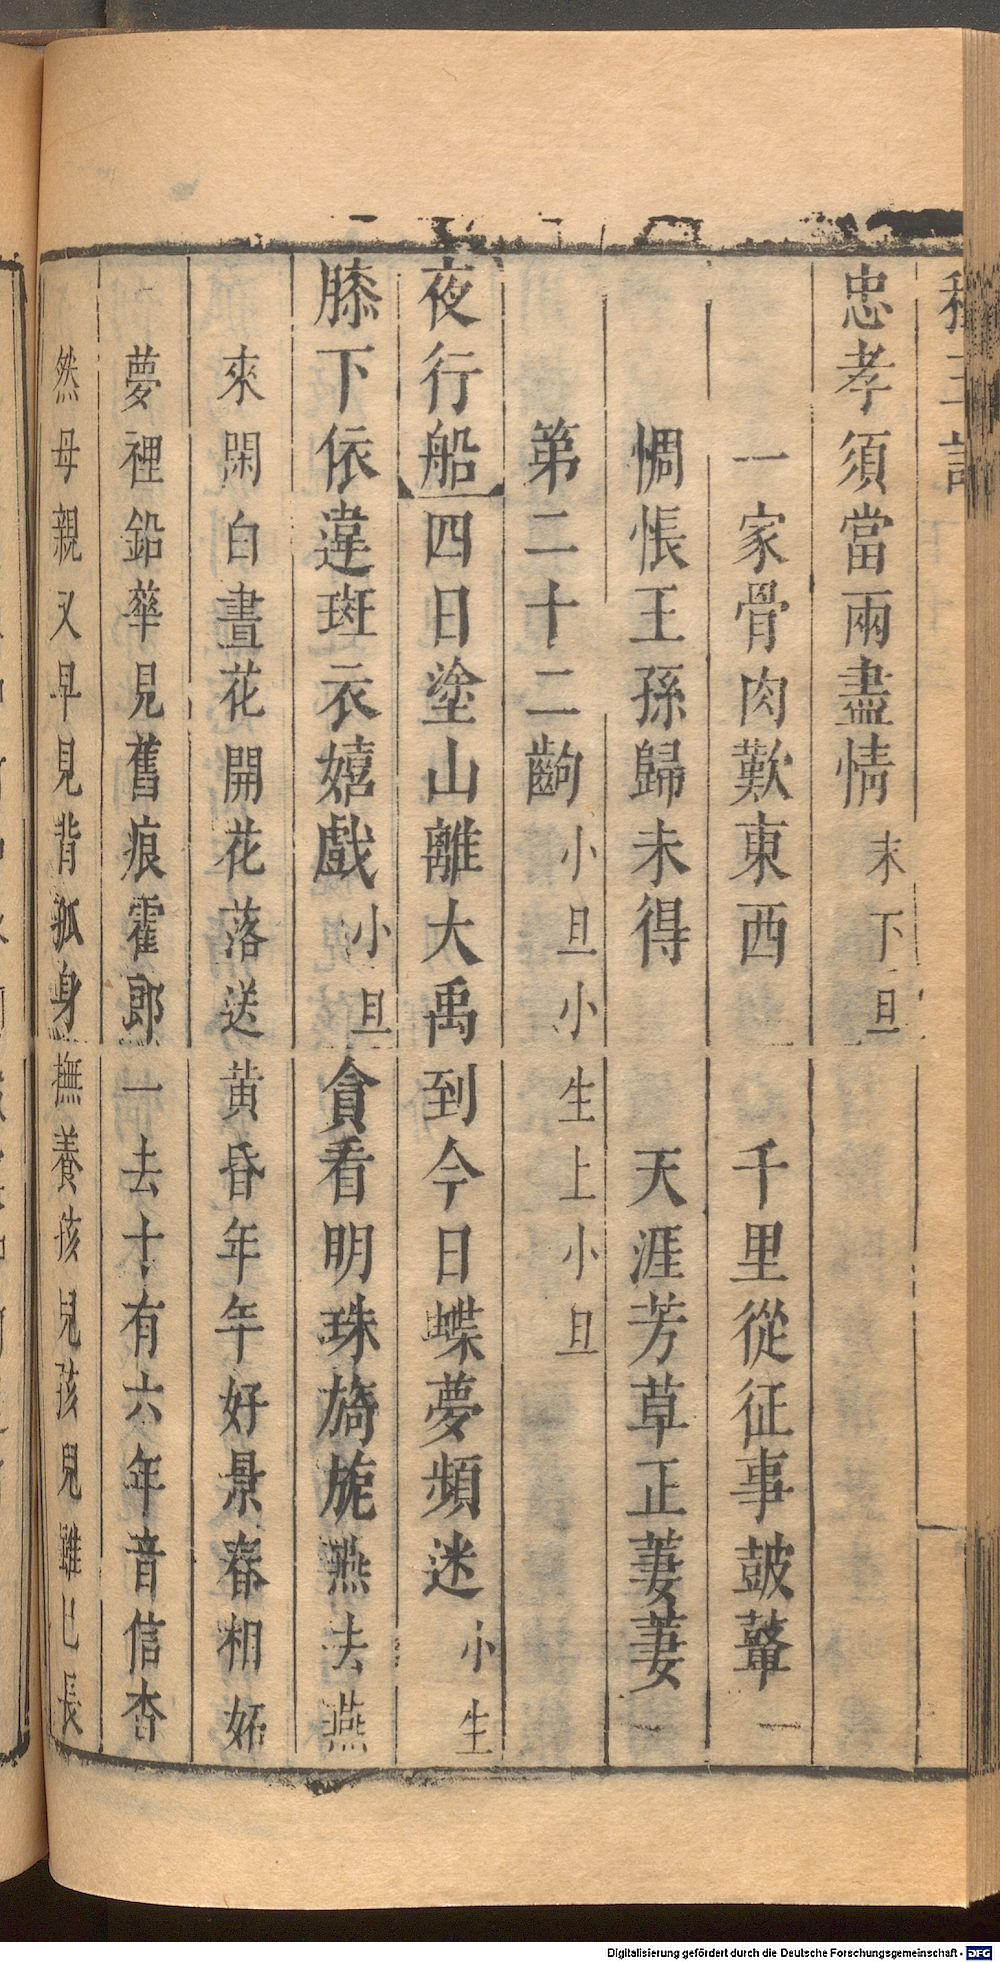 忠孝須當兩盡情 末下旦
一家骨肉歎東西 千里從征事鼓鼙
惆悵王孫歸未得 天涯芳草正萋萋
第二十二齣 小旦小生上小旦
夜行船 四日塗山離大禹到今日蝶夢頻迷 小生
膝下依違斑衣嬉戲 小旦 貪看明珠旖旎燕去燕
來閑白晝花開花落送黄昏年年好景春相妬
夢裡鉛華見舊痕霍郎一去十有六年音信杳
然母親又早見背孤身撫養孩兒孩兒雖已長
Digitalisierung gefördert durch die Deutsche Forschungsgemeinschaft - DFG